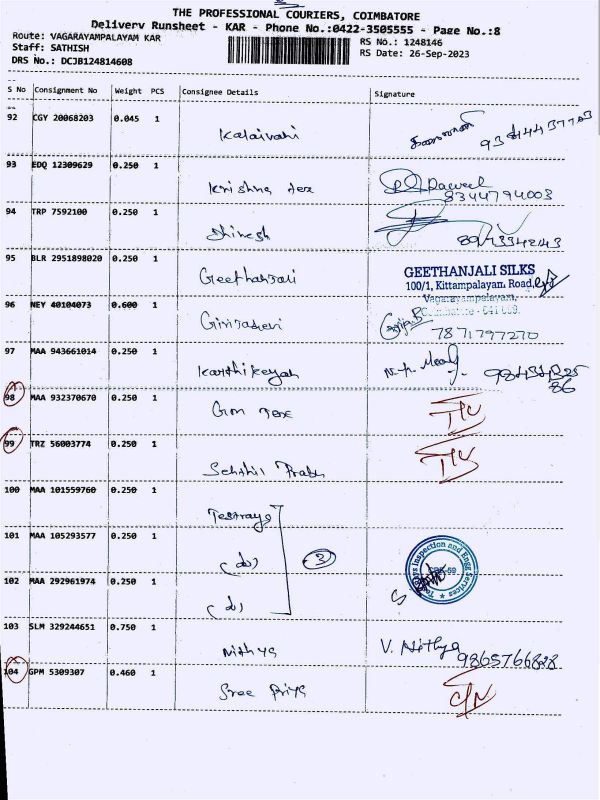 THE PROFESSIONAL COURIERS, COIMBATORE
Delivery Runsheet - KAR - Phone No.:0422-3505555 - Page No.:8
Route: VAGARAYAMPALAYAM KAR
RS No.: 1248146
Staff: SATHISH
RS Date: 26-Sep-2023
DRS No.: DCJB124814608
S No Consignment No Weight PCS Consignee Details Signature
92 CGY 20068203 0.045 1
Kalaivani
93 EDQ 12309629 0.250 1
Krishna tex
8344794003
94 TRP 7592100 0.250 1
Dhinesh
95 BLR 2951898020 0.250 1
Geethanjali
GEETHANJALI SILKS
100/1, Kittampalayam, Road,
Vagarayampalayam,
Coimbatore - 641 659.
96 NEY 40104073 0.600 1
Girijadevi
7871797270
97 MAA 943661014 0.250 1
Karthikeyan
98 MAA 932370670 0.250 1
Gm Tex
99 TRZ 56003774 0.250 1
Senthil Prabu
100 MAA 101559760 0.250 1
101 MAA 105293577 0.250 1
(do) 3
Inspection and Engg Services
102 MAA 292961974 0.250 1
(do)
103 SLM 329244651 0.750 1
Nithya
V. Nithya
104 GPM 5309307 0.460 1
Sree Priya